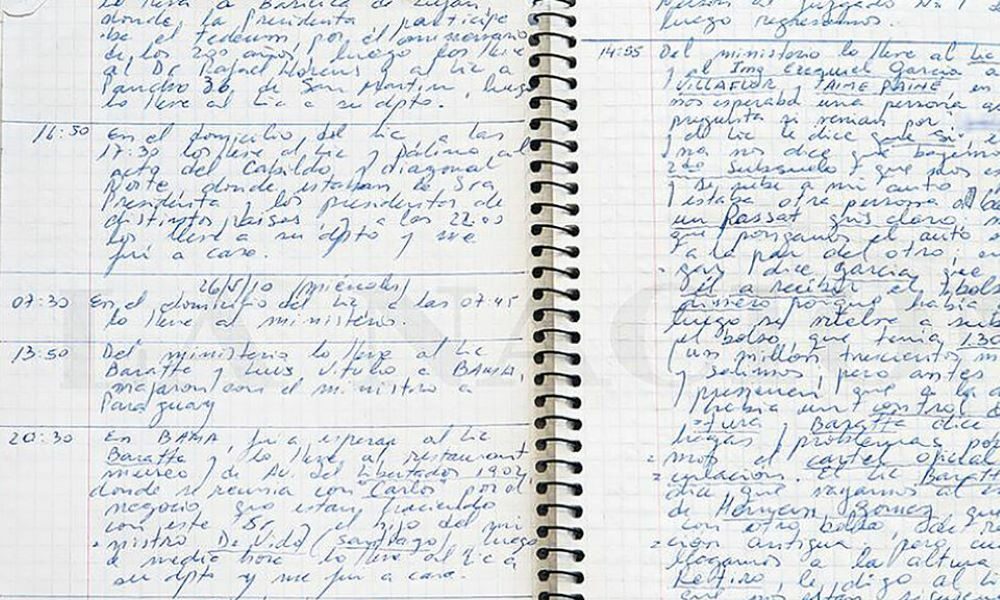 lo lleva a Basilica de Lujan
donde la Presidenta participe
de el tedeum, por el aniversario
de los 200 años, luego los lleve
al Dr Rafael Llorens y al Lic a
Pancho 36, de San Martin, luego
lo lleve al Lic a su dpto.
16:50 En el domicilio del Lic, a las
17:30 los lleve al Lic y Palina al
acto del Cabildo, y diagonal
Norte donde estaban la Sra
Presidenta y los presidentes de
distintos paises y a las 22:00
los lleve a su dpto y me
fui a casa.
26/5/10 (miercoles)
07:30 En el domicilio del Lic a las 07:45
lo lleve al ministerio.
13:50 Del ministerio lo lleve al Lic
Baratta y Luis Vitullo a BAMA,
viajaron con el ministro a
Paraguay
20:30 En BAMA, fui a esperar al Lic
Baratta y lo lleve al restaurant
museo, de Av. del Libertador 1902,
donde se reunia con "Carlos" por el
negocio que estan haciendo
con este Sr, el hijo del mi
nistro De Vido (Santiago) luego
a media hora lo lleve al Lic a
su dpto y me fui a casa.
luego regresamos.
14:55 Del ministerio lo lleve al Lic
y al Ing Ezequiel Garcia a
VILLAFLOR, JAIME PAINE, en
nos esperaba una persona
pregunta si venian por
el Lic le dice que si, e
y no, nos dice que bajemos
2do Subsuelo y que nos es
y se sube a mi auto
y estaba otra persona
un Passat gris claro
que pongamos el auto
a la par del otro, en
gar dice Garcia, que
el a recibir el bolso
dinero porque habia
luego se vuelve a subi
el bolso, que tenia 1.30
(un millon trescientos m
y salimos, pero antes
que a la
habia un control
tura, Baratta dice
hagas problemas por
mos el cartel oficial
culacion. El Lic Baratta
dice que vayamos al
de Hernan Gomez que
con otro bolso de r
cion antigua. pero cu
llegamos a la altura
Retiro, le digo al Li
que nos estan siguien
LA NACION